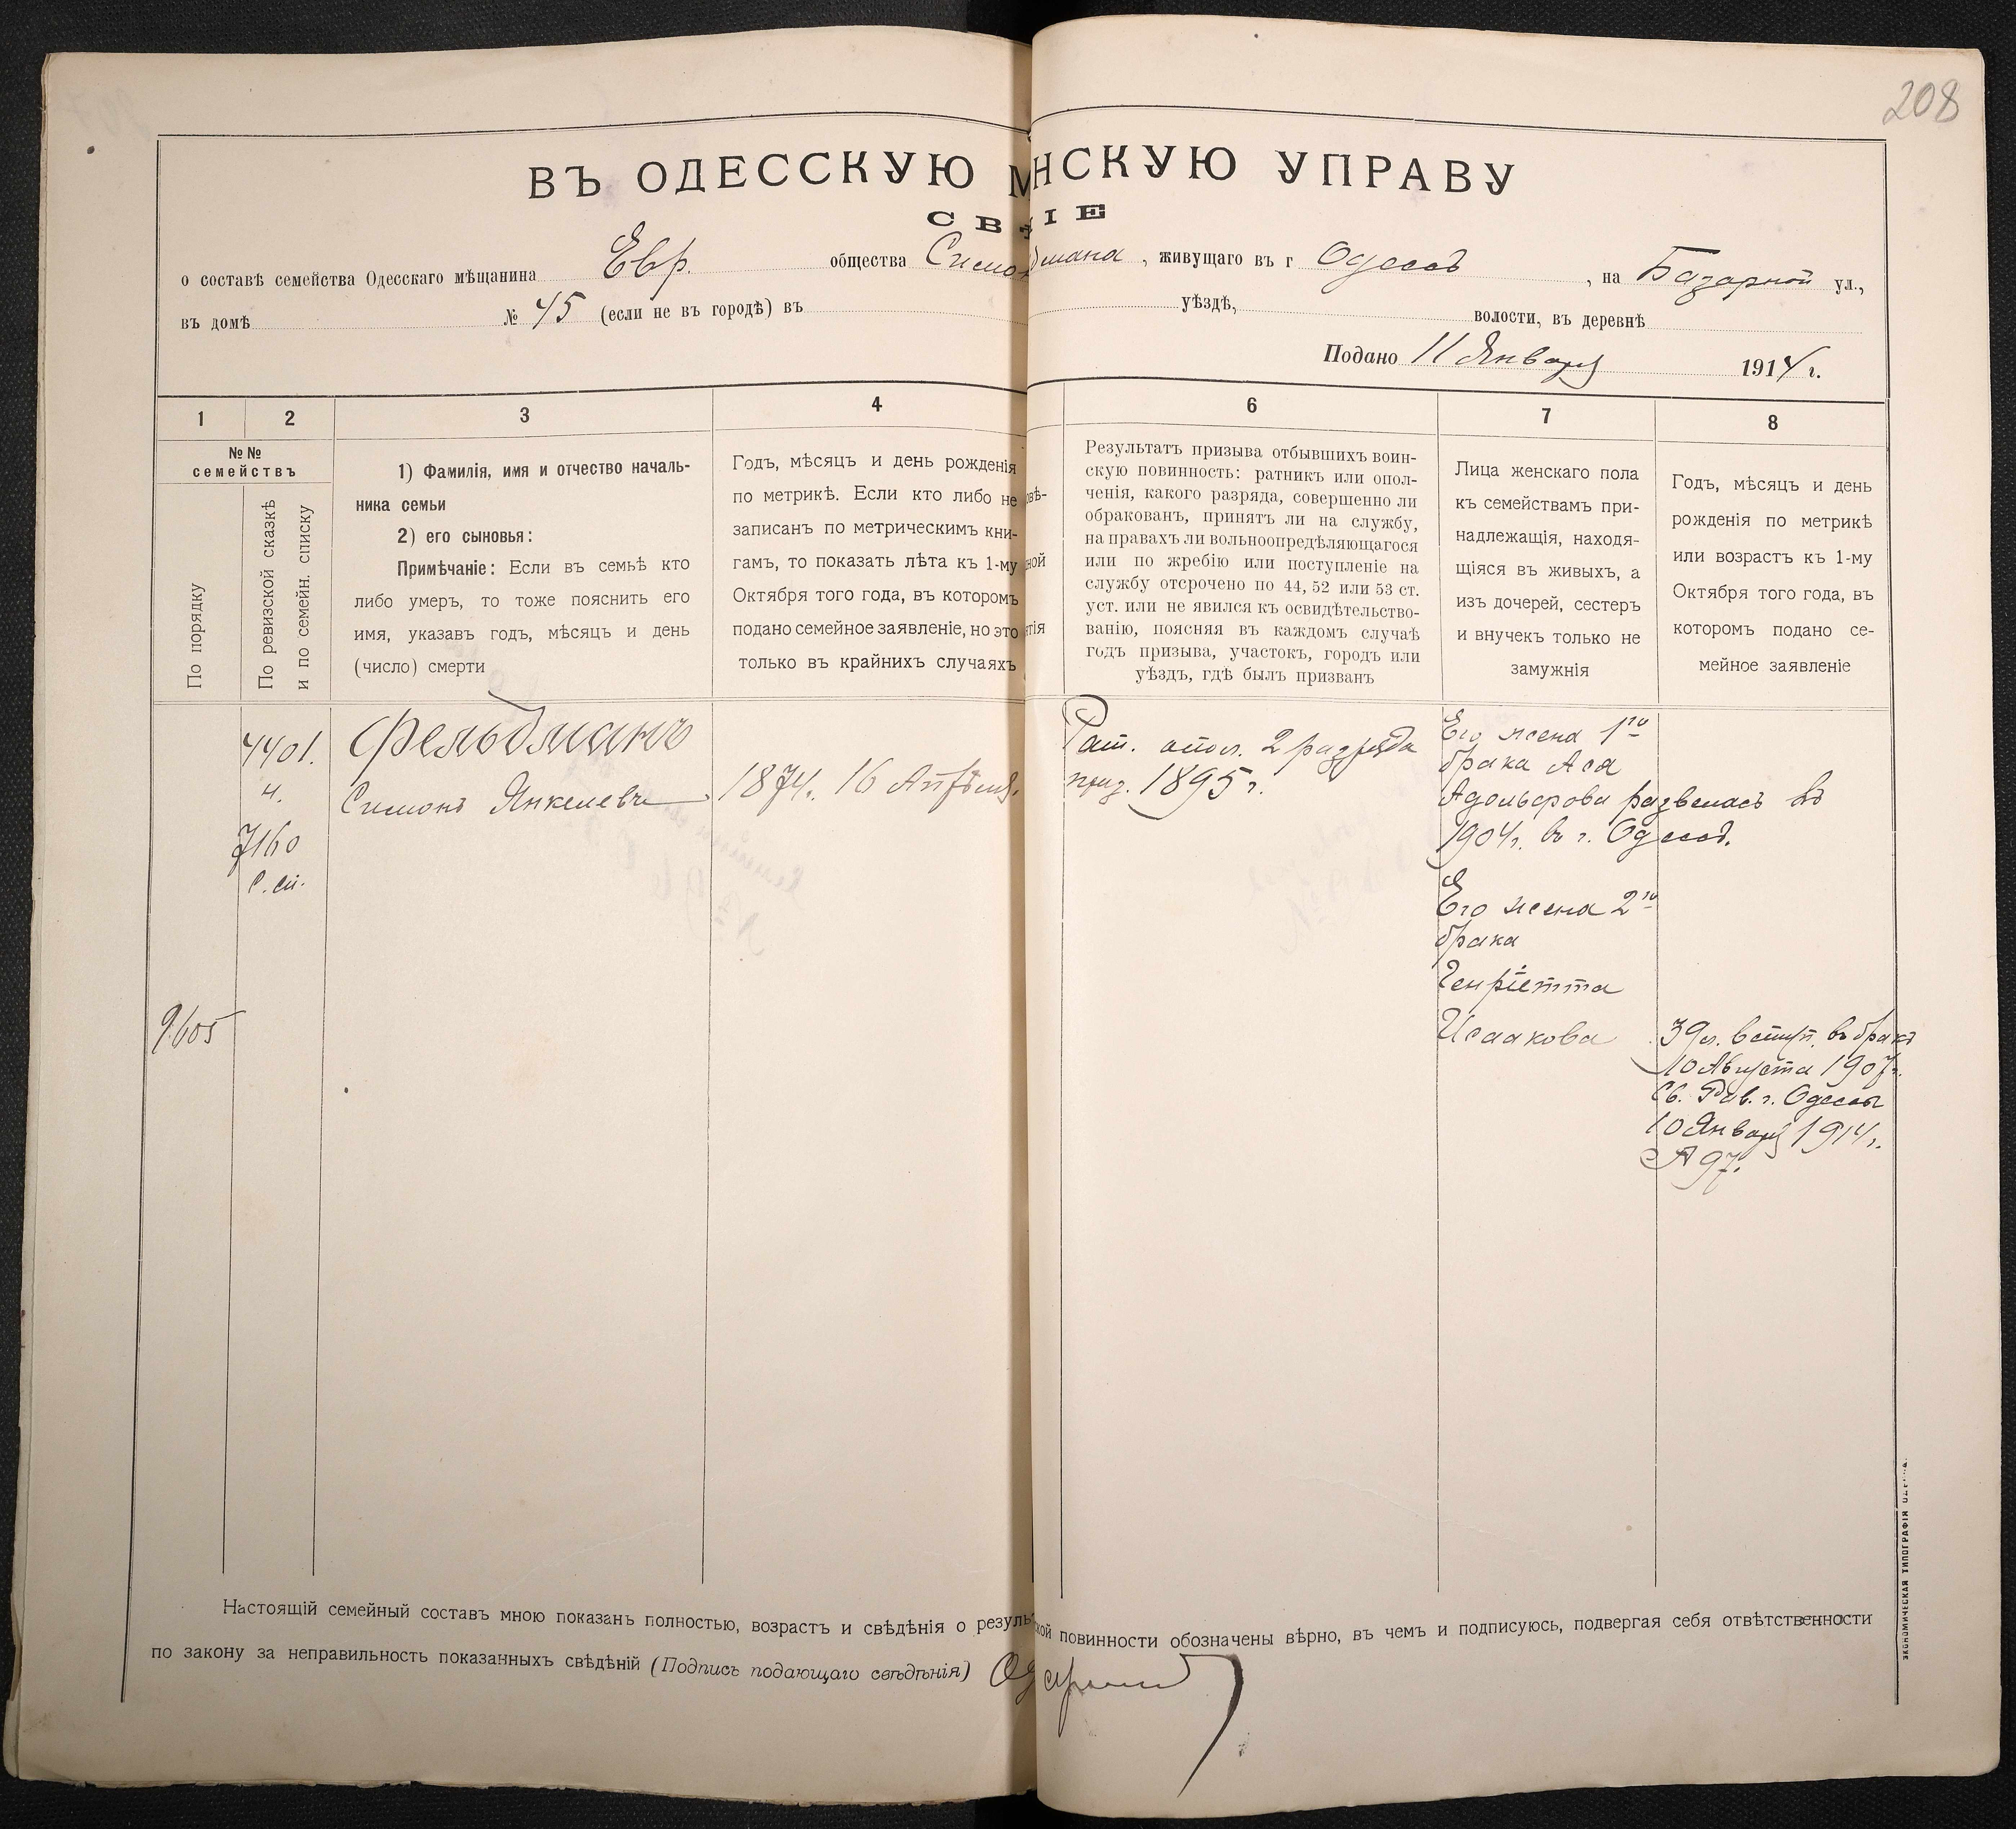 208
ВЪ ОДЕССКУЮ М НСКУЮ УПРАВУ
СВ IE
о составѣ семейства Одесскаго мѣщанина Евр. общества Симо дмана, живущаго въ г Одессѣ, на Базарной ул.,
въ домѣ № 45 (если не въ городѣ) въ уѣздѣ, волости, въ деревнѣ
Подано 11 Января 1914 г.
1 2 3 4 6 7 8
№№
семействъ
По порядку
По ревизской сказкѣ
и по семейн. списку
1) Фамилія, имя и отчество началь-
ника семьи
2) его сыновья:
Примѣчаніе: Если въ семьѣ кто
либо умеръ, то тоже пояснить его
имя, указавъ годъ, мѣсяцъ и день
(число) смерти
Годъ, мѣсяцъ и день рожденія
по метрикѣ. Если кто либо не
записанъ по метрическимъ кни-
гамъ, то показать лѣта къ 1-му
Октября того года, въ которомъ
подано семейное заявленіе, но это
только въ крайнихъ случаяхъ
овѣ-
ной
тія
Результатъ призыва отбывшихъ воин-
скую повинность: ратникъ или опол-
ченія, какого разряда, совершенно ли
обракованъ, принятъ ли на службу,
на правахъ ли вольноопредѣляющагося
или по жребію или поступленіе на
службу отсрочено по 44, 52 или 53 ст.
уст. или не явился къ освидѣтельство-
ванію, поясняя въ каждомъ случаѣ
годъ призыва, участокъ, городъ или
уѣздъ, гдѣ былъ призванъ
Лица женскаго пола
къ семействамъ при-
надлежащія, находя-
щіяся въ живыхъ, а
изъ дочерей, сестеръ
и внучекъ только не
замужнія
Годъ, мѣсяцъ и день
рожденія по метрикѣ
или возрастъ къ 1-му
Октября того года, въ
которомъ подано се-
мейное заявленіе
4401.
ч.
7160
с. сп.
9605
Фельдманъ
Симонъ Янкелевъ
1874. 16 Апрѣля.
Рат. опол. 2 разряда
приз. 1895 г.
Его жена 1го
брака Ася
Адольфова развелась въ
1904 г. въ г. Одессѣ.
Его жена 2го
брака
Генріетта
Исаакова
39 л. вступ. въ бракъ
10 Августа 1907 г.
Св. Рав. г. Одессы
10 Января 1914 г.
№ 97.
Настоящій семейный составъ мною показанъ полностью, возрастъ и свѣдѣнія о резуль кой повинности обозначены вѣрно, въ чемъ и подписуюсь, подвергая себя отвѣтственности
по закону за неправильность показанныхъ свѣдѣній (Подпись подающаго свѣдѣнія)
ЭКОНОМИЧЕСКАЯ ТИПОГРАФІЯ